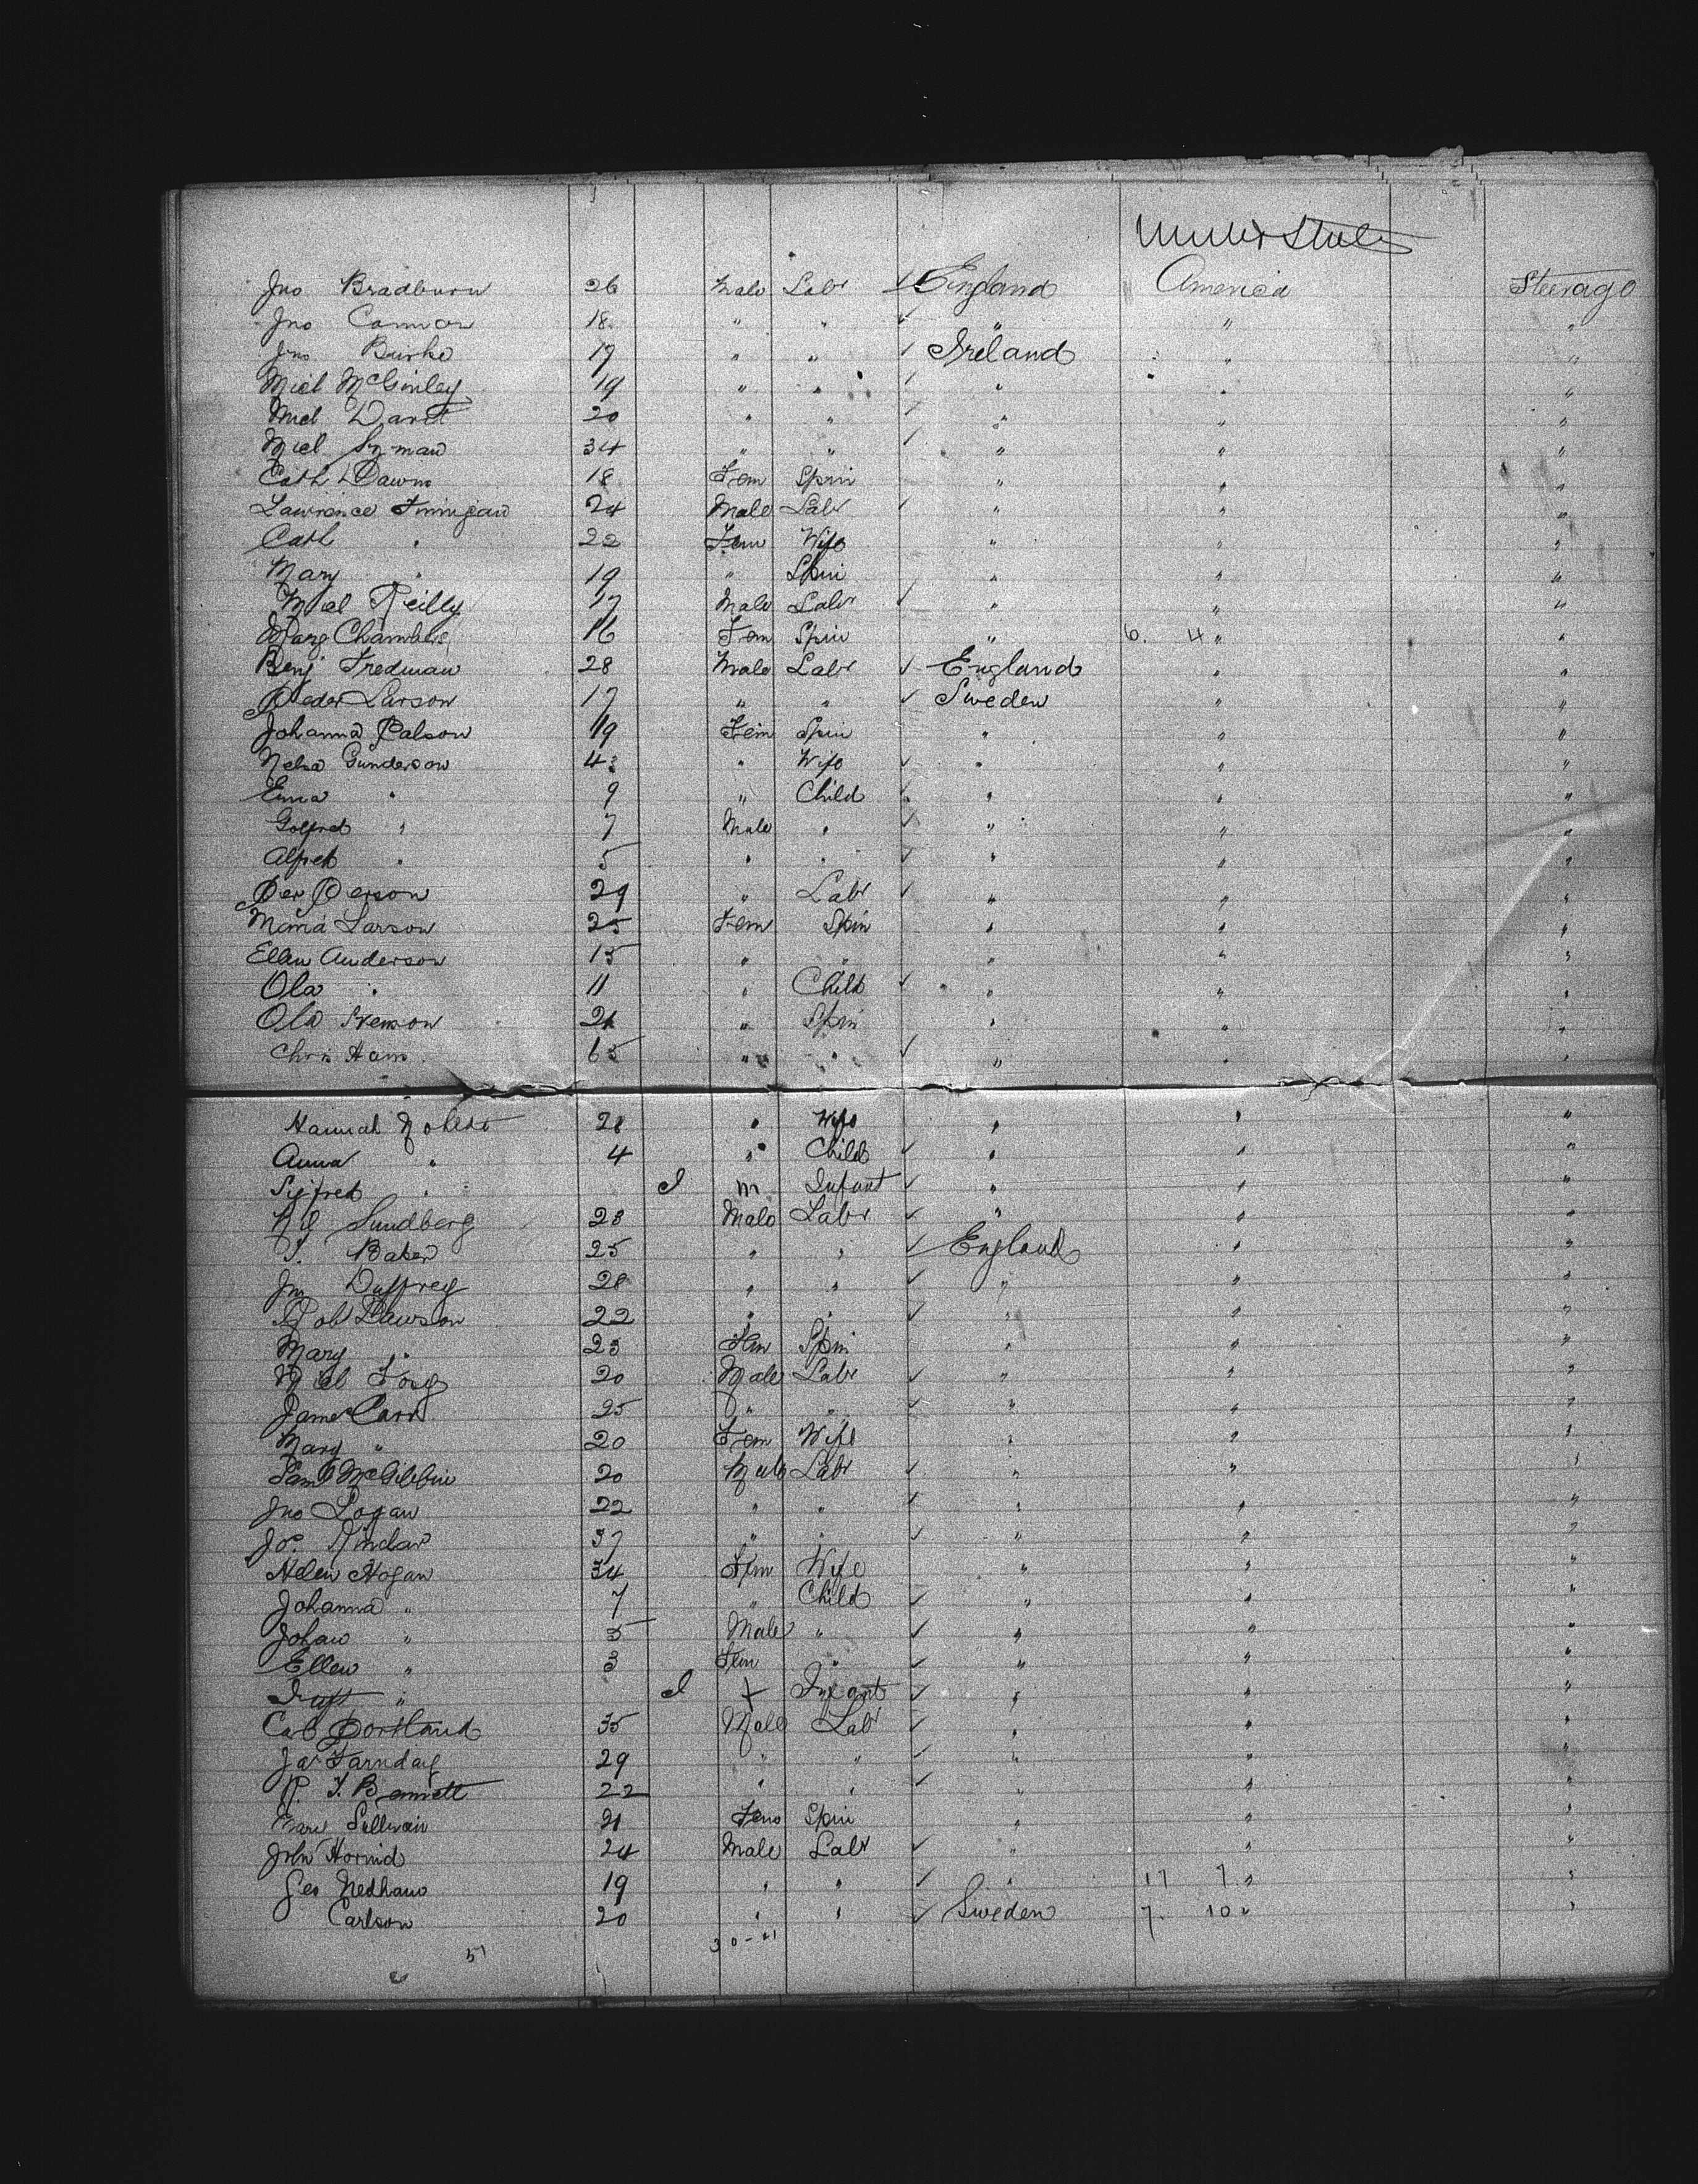 United States
Jno Bradburn 26 Male Labr ✓ England America Steerage
Jno Connor 18 " " ✓ " " "
Jno Burke 17 " " ✓ Ireland " "
Micl McGinley 19 " " ✓ " " "
Micl 20 " " ✓ " " "
Micl 34 " " ✓ " " "
Cath 18 Fem Spin " " "
Lawrence Finnigan 24 Male Labr ✓ " " "
Cath " 22 Fem Wife " " "
Mary " 19 " Spin " " "
Micl Reilly 17 Male Labr ✓ " " "
Marg Chambers 16 Fem Spin " 6. 4 " "
Benj Fredman 28 Male Labr ✓ England " "
Peder Larson 17 " " ✓ Sweden " "
Johanna Palson 19 Fem Spin " " "
Nelsa Gunderson 43 " Wife ✓ " " "
Ema " 9 " Child ✓ " " "
Golfred " 7 Male " ✓ " " "
Alfred " 5 " " ✓ " " "
Per Person 29 " Labr ✓ " " "
Maria Larson 25 Fem Spin " " "
Ellen Anderson 15 " " " " "
Ola " 11 " Child ✓ " " "
Ola Svenson 21 " Spin " " "
Chris Ham 65 " " ✓ " " "
Hannah 28 " Wife " " "
Anna " 4 " Child ✓ " " "
Sigfred " I m Infant ✓ " " "
Nil Sundberg 28 Male Labr ✓ " " "
T. Baker 25 " " ✓ England " "
Jno Duffrey 28 " " ✓ " " "
Rob Dawson 22 " " ✓ " " "
Mary " 23 Fem Spin " " "
Micl 20 Male Labr ✓ " " "
James Carr 25 " " ✓ " " "
Mary " 20 Fem Wife " " "
Saml McGibbin 20 Male Labr ✓ " " "
Jno Logan 22 " " ✓ " " "
Jos 37 " " ✓ " " "
Helen Hogan 34 Fem Wife " " "
Johanna " 7 " Child ✓ " " "
Johan " 5 Male " ✓ " " "
Ellen " 3 Fem " ✓ " " "
Inft " I f Infant ✓ " " "
Portland 35 Male Labr ✓ " " "
Jas Farnday 29 " " ✓ " " "
R. T. Bennett 22 " " ✓ " " "
Sullivan 21 Fem Spin " " "
John 24 Male Labr ✓ " " "
Geo Nedham 19 " " ✓ " 17 7 " "
Carlson 20 " " ✓ Sweden 7. 10 " "
51 30-21